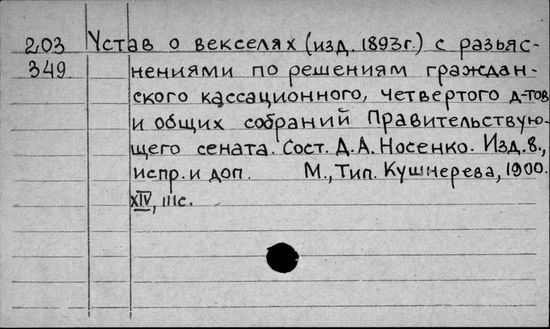 203 Устав о векселях (изд. 1893г.) с разъяс-
349 нениями по решениям граждан-
ского кассационного, четвертого д-тов
и общих собраний Правительствую-
щего сената. Сост. Д.А. Носенко. Изд. 8.,
испр. и доп. М., Тип. Кушнерева, 1900.
XIV, 111с.